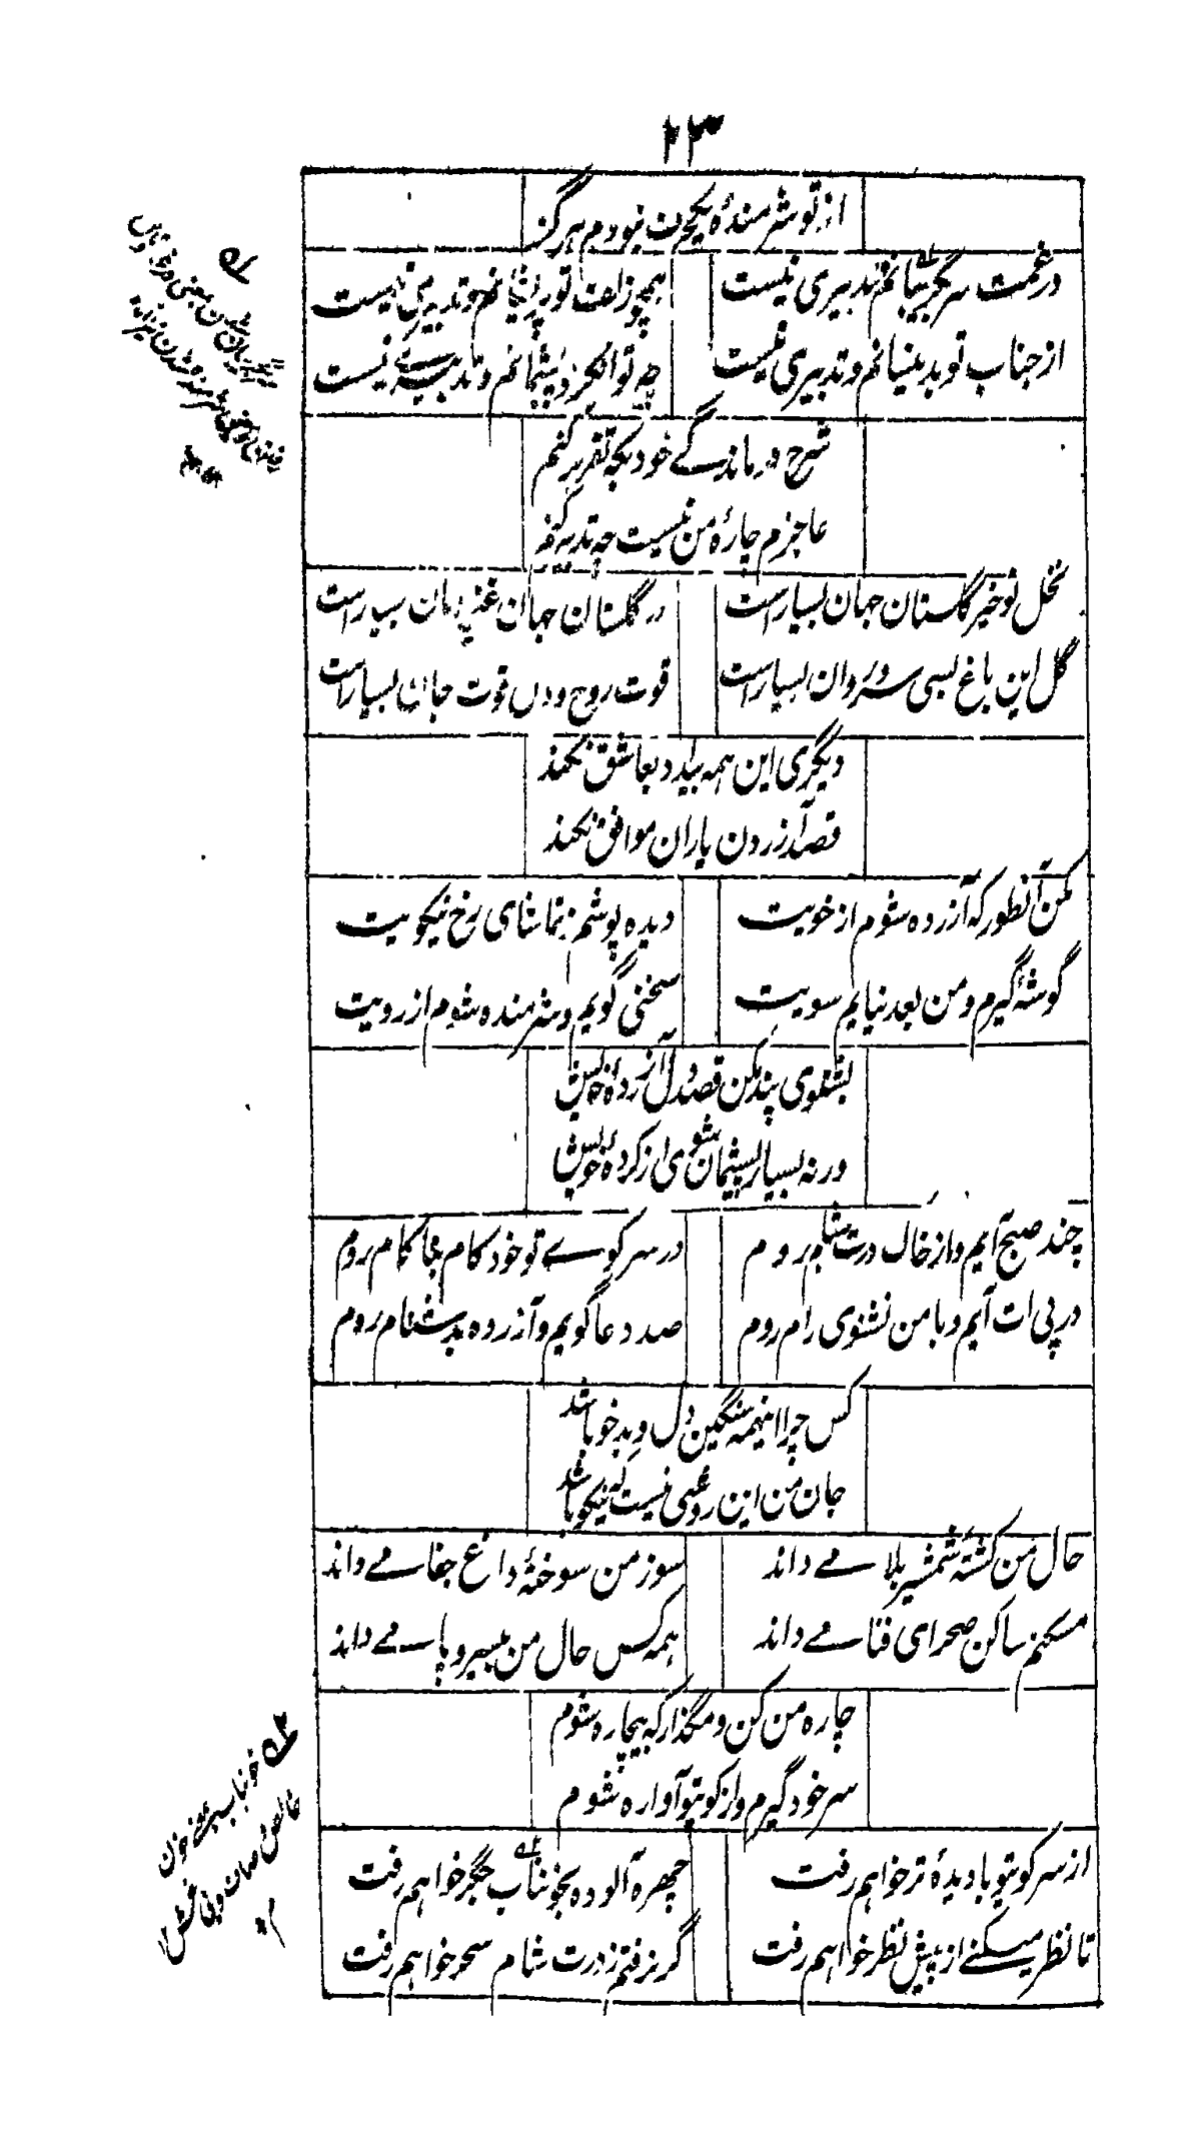 ۲۳
از تو شرمندهٔ یکحرف نبودم هرگز
در غمت سر بگریبانم و تدبیری نیست همچو زلفت تو پریشانم و تدبیری نیست
از جناب تو بدینسانم و تدبیری نیست چه توانکرد پشیمانم و تدبیرے نیست
شرح درماندگے خود بکه تقریر کنم
عاجزم چارهٔ من نیست چه تدبیر کنم
نخل نوخیز گلستان جهان بسیار است در گلستان جهان غنچه دهان بسیار است
گل این باغ بسی سرو روان بسیار است قوت روح و دل قوت جان بسیار است
دیگری این همه بیداد بعاشق نکند
قصد آزردن یاران موافق نکند
مکن آنطور که آزرده شوم از خویت دیده پوشم ز تماشای رخ نیکویت
گوشهٔ گیرم و من بعد نیایم سویت سخنی گویم و شرمنده شوم از رویت
بشنوی پند مکن قصد دل آزردهٔ خویش
ورنه بسیار پشیمان شوی از کردهٔ خویش
چند صبح آیم و از خاک درت شام روم در سر کوے تو خود کام بنا کام روم
در پی ات آیم و با من نشنوی رام روم صد دعا گویم و آزرده بدشنام روم
کس چرا اینهمه سنگین دل و بد خو باشد
جان من این روشی نیست که نیکو باشد
حال من کشتهٔ شمشیر بلا مے داند سوز من سوختهٔ داغ جفا مے داند
مسکنم ساکن صحرای فنا مے داند همه کس حال من بیسر و پا مے داند
چاره من کن و مگذار که بیچاره شوم
سر خود گیرم و از کوی تو آواره شوم
از سر کویتو با دیدهٔ تر خواهم رفت چهره آلوده بخونناب جگر خواهم رفت
تا نظر میکنے از پیش نظر خواهم رفت گر نرفتم ز درت شام سحر خواهم رفت
خوناب بمعنے خون